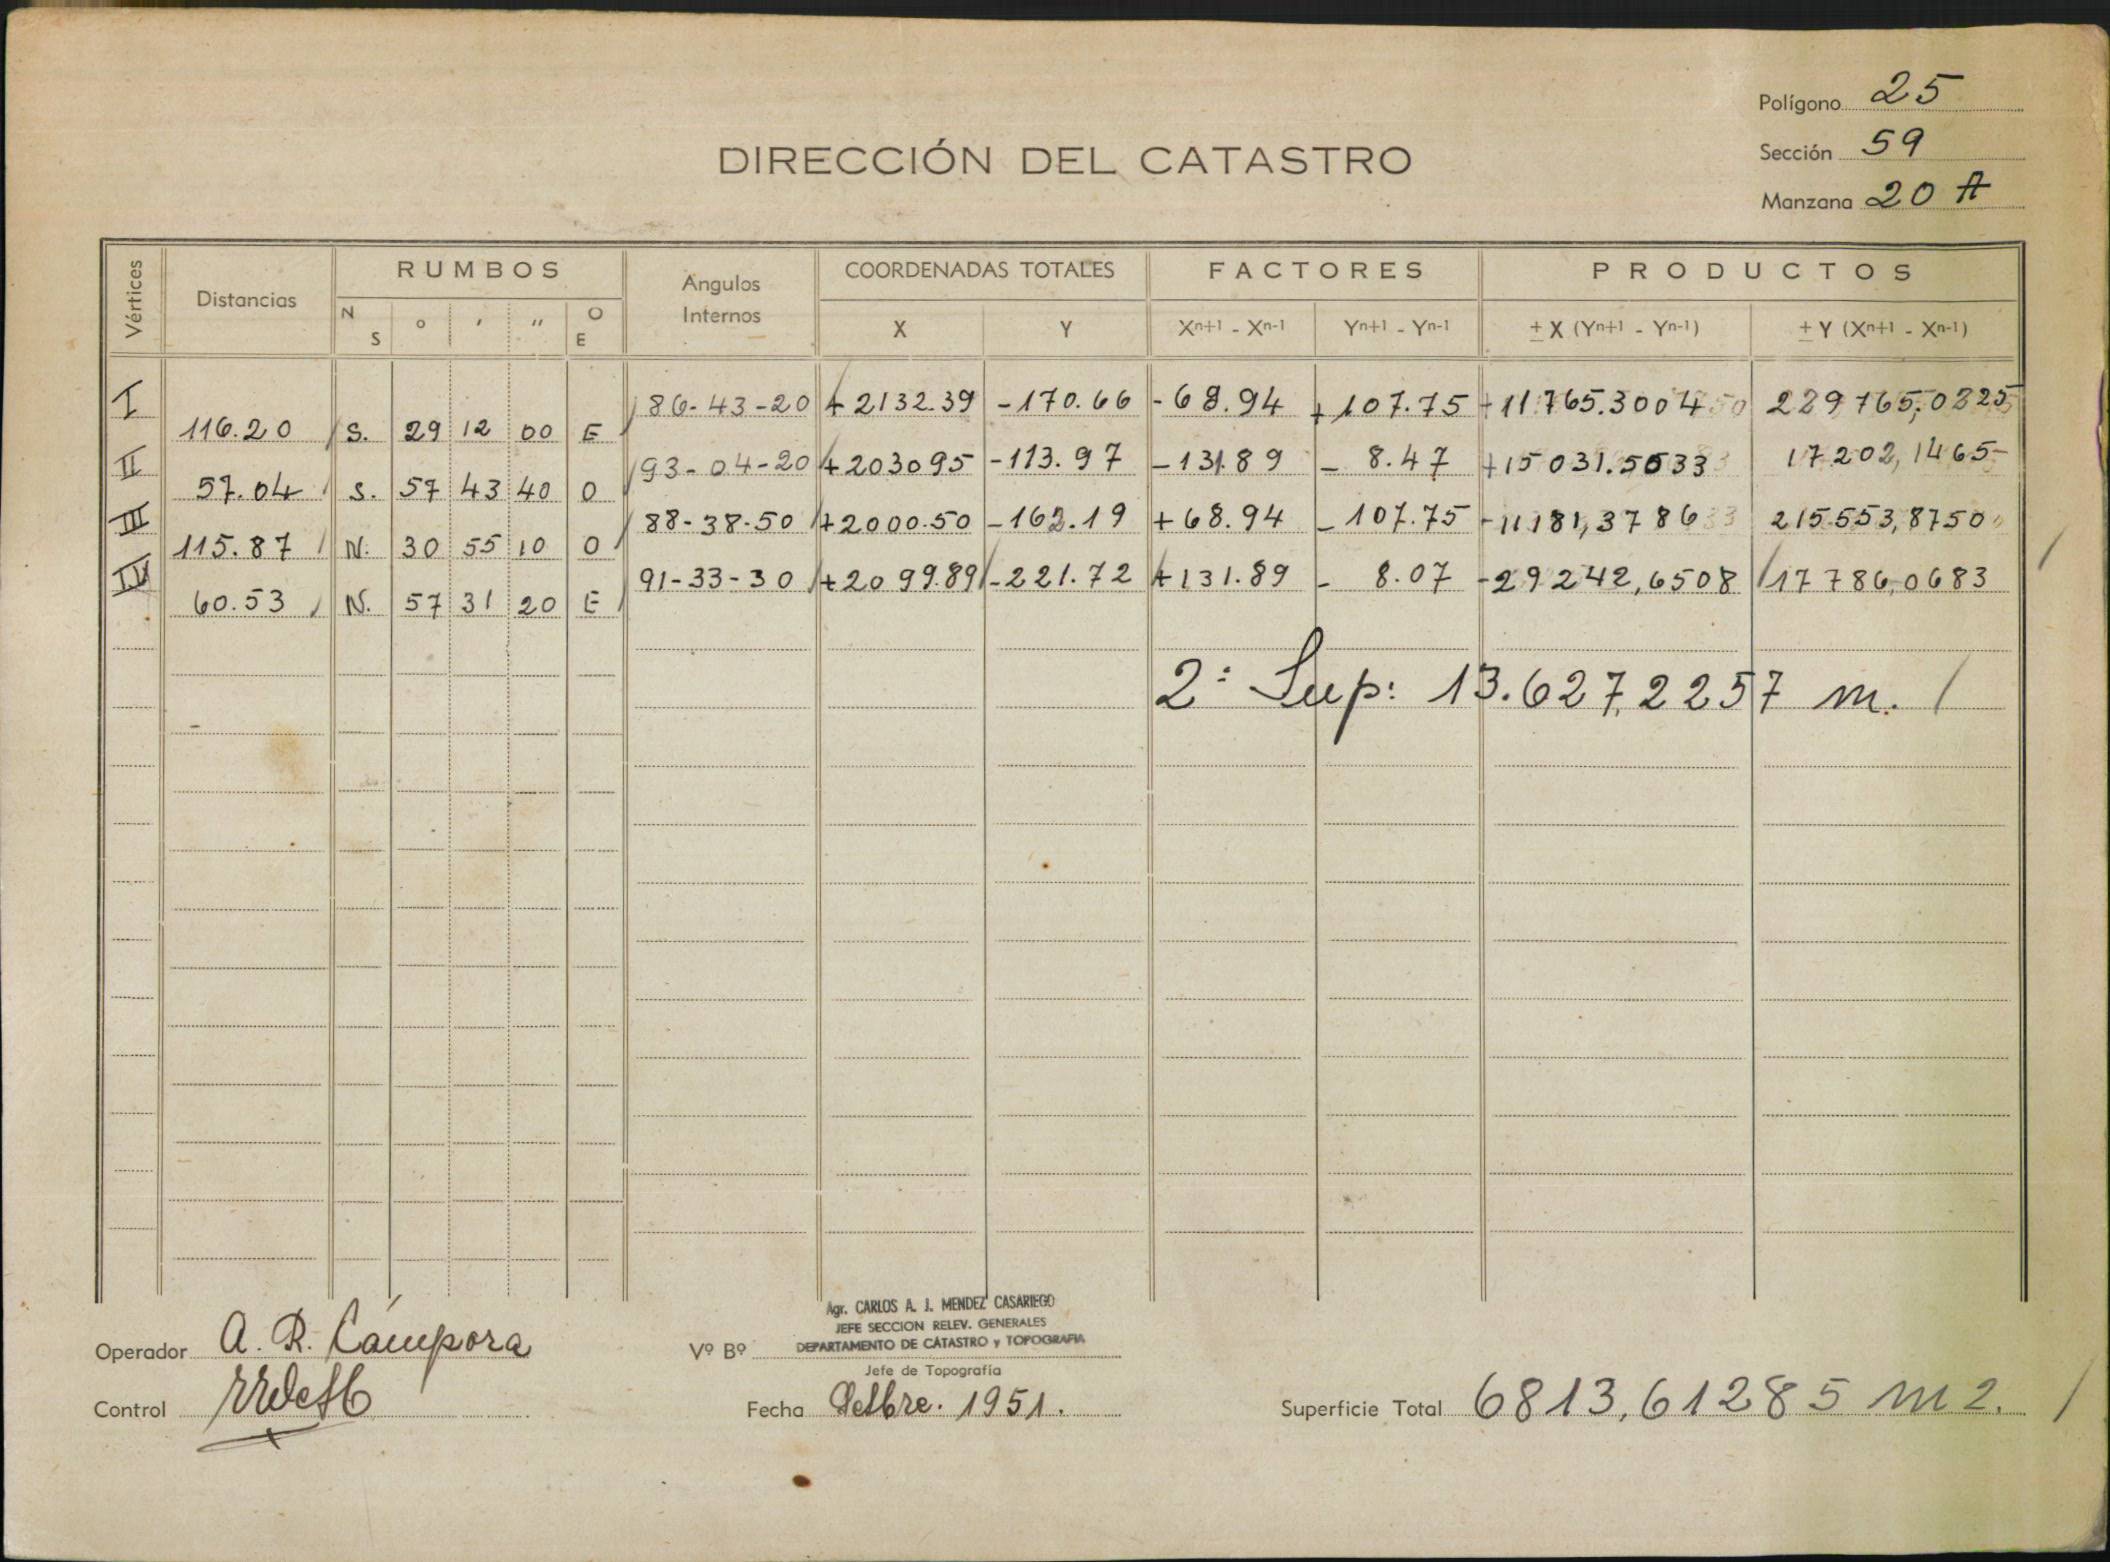 Polígono 25
Sección 59
Manzana 20 A
DIRECCIÓN DEL CATASTRO
Vértices Distancias RUMBOS Angulos Internos COORDENADAS TOTALES FACTORES PRODUCTOS
N S ° ' " O E X Y Xn+1 - Xn-1 Yn+1 - Yn-1 ± X (Yn+1 - Yn-1) ± Y (Xn+1 - Xn-1)
I 86-43-20 +2132.39 -170.66 -68.94 +107.75 +11765.3004 229765,0225
116.20 S. 29 12 00 E
II 93-04-20 +203095 -113.97 -131.89 - 8.47 +15031.5033 17202,1465
57.04 S. 57 43 40 O
III 88-38-50 +2000.50 -162.19 +68.94 -107.75 -11181,3786 215553,8750
115.87 N. 30 55 10 O
IV 91-33-30 +2099.89 -221.72 +131.89 - 8.07 -29242,6508 17786,0683
60.53 N. 57 31 20 E
2: Sup: 13.627,2257 m.
Agr. CARLOS A. J. MENDEZ CASARIEGO
JEFE SECCION RELEV. GENERALES
DEPARTAMENTO DE CATASTRO y TOPOGRAFIA
Operador A. R. Cámpora Vº Bº
Jefe de Topografía
Control Fecha 1951. Superficie Total 6813,61285 m2.